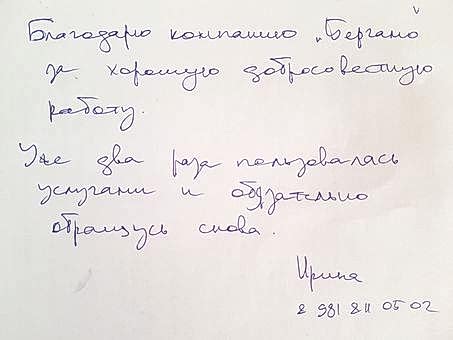 Благодарю компанию „Бергано"
за хорошую добросовестную
работу.
Уже два раза пользовалась
услугами и обязательно
обращусь снова.
Ирина
8 981 811 05 02